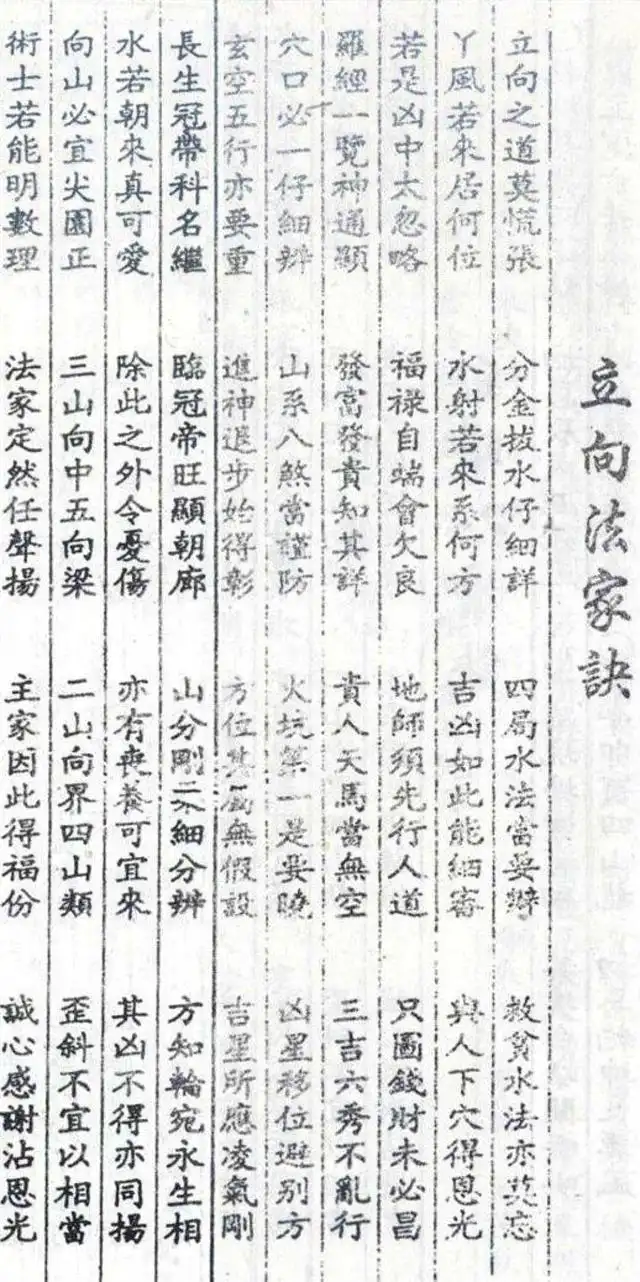 立向法家訣
立向之道莫慌張 分金拔水仔細詳 四局水法當要辯 救貧水法亦莫忘
丫風若來居何位 水射若來系何方 吉凶如此能細審 與人下穴得恩光
若是凶中太忽略 福祿自端會欠良 地師須先行人道 只圖錢財未必昌
羅經一覽神通顯 發富發貴知其詳 貴人天馬當無空 三吉六秀不亂行
穴口必一仔細辨 山系八煞當謹防 火坑第一是要曉 凶星移位避別方
玄空五行亦要重 進神退步始得彰 方位其居無假設 吉星所應凌氣剛
長生冠帶科名繼 臨冠帝旺顯朝廊 山分剛二細分辨 方知輪宛永生相
水若朝來真可愛 除此之外令憂傷 亦有喪養可宜來 其凶不得亦同揚
向山必宜尖圓正 三山向中五向梁 二山向界四山類 歪斜不宜以相當
術士若能明數理 法家定然任聲揚 主家因此得福份 誠心感謝沾恩光